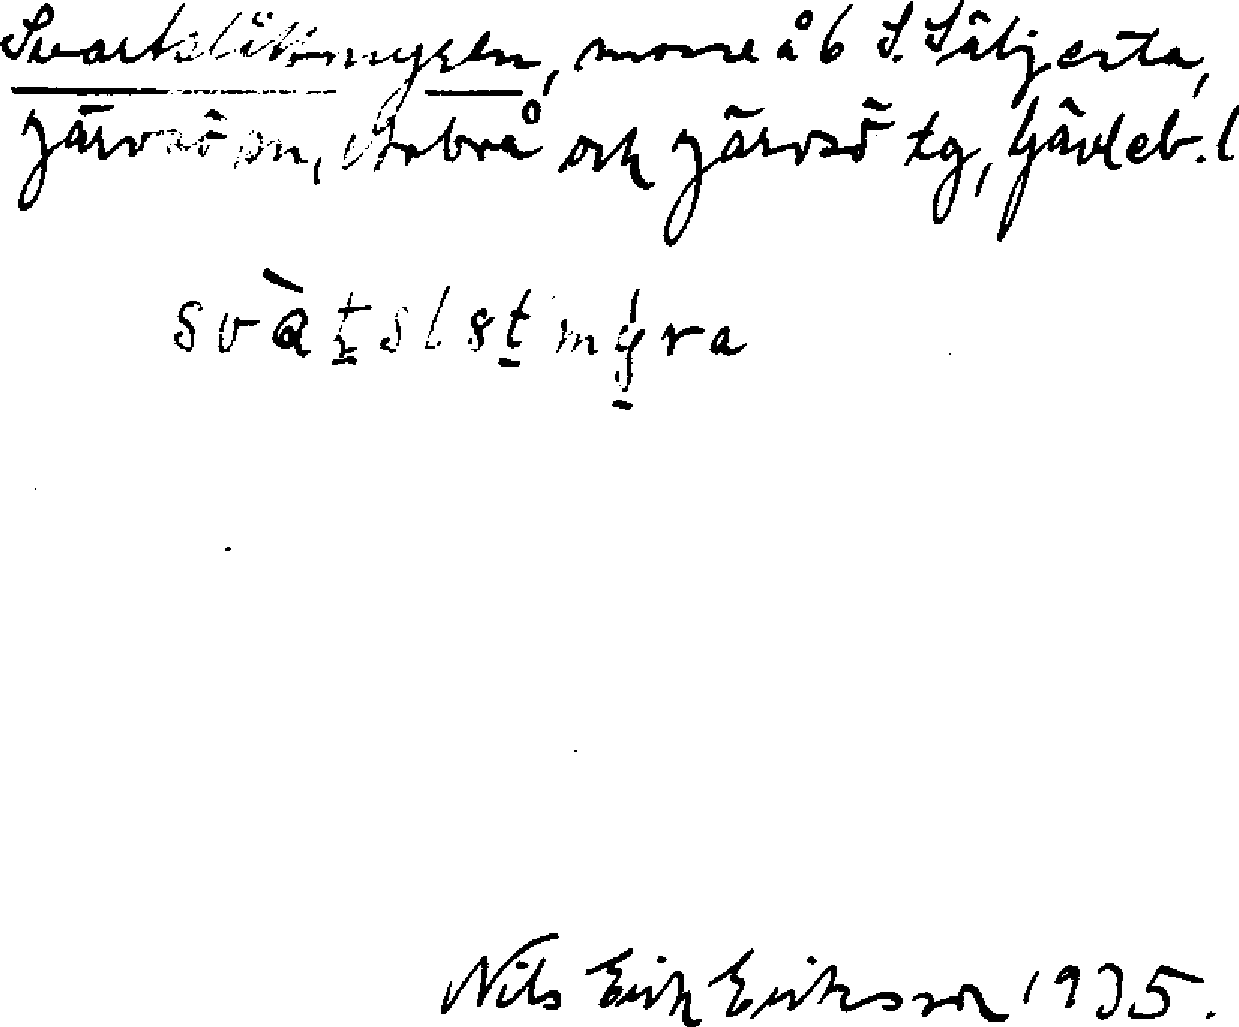 Svartslåttmyren, mosse å 6 S. Säljesta,
Järvsö sn, Arbrå och Järvsö tg, Gävleb. l
Nils Erik Eriksson 1935.